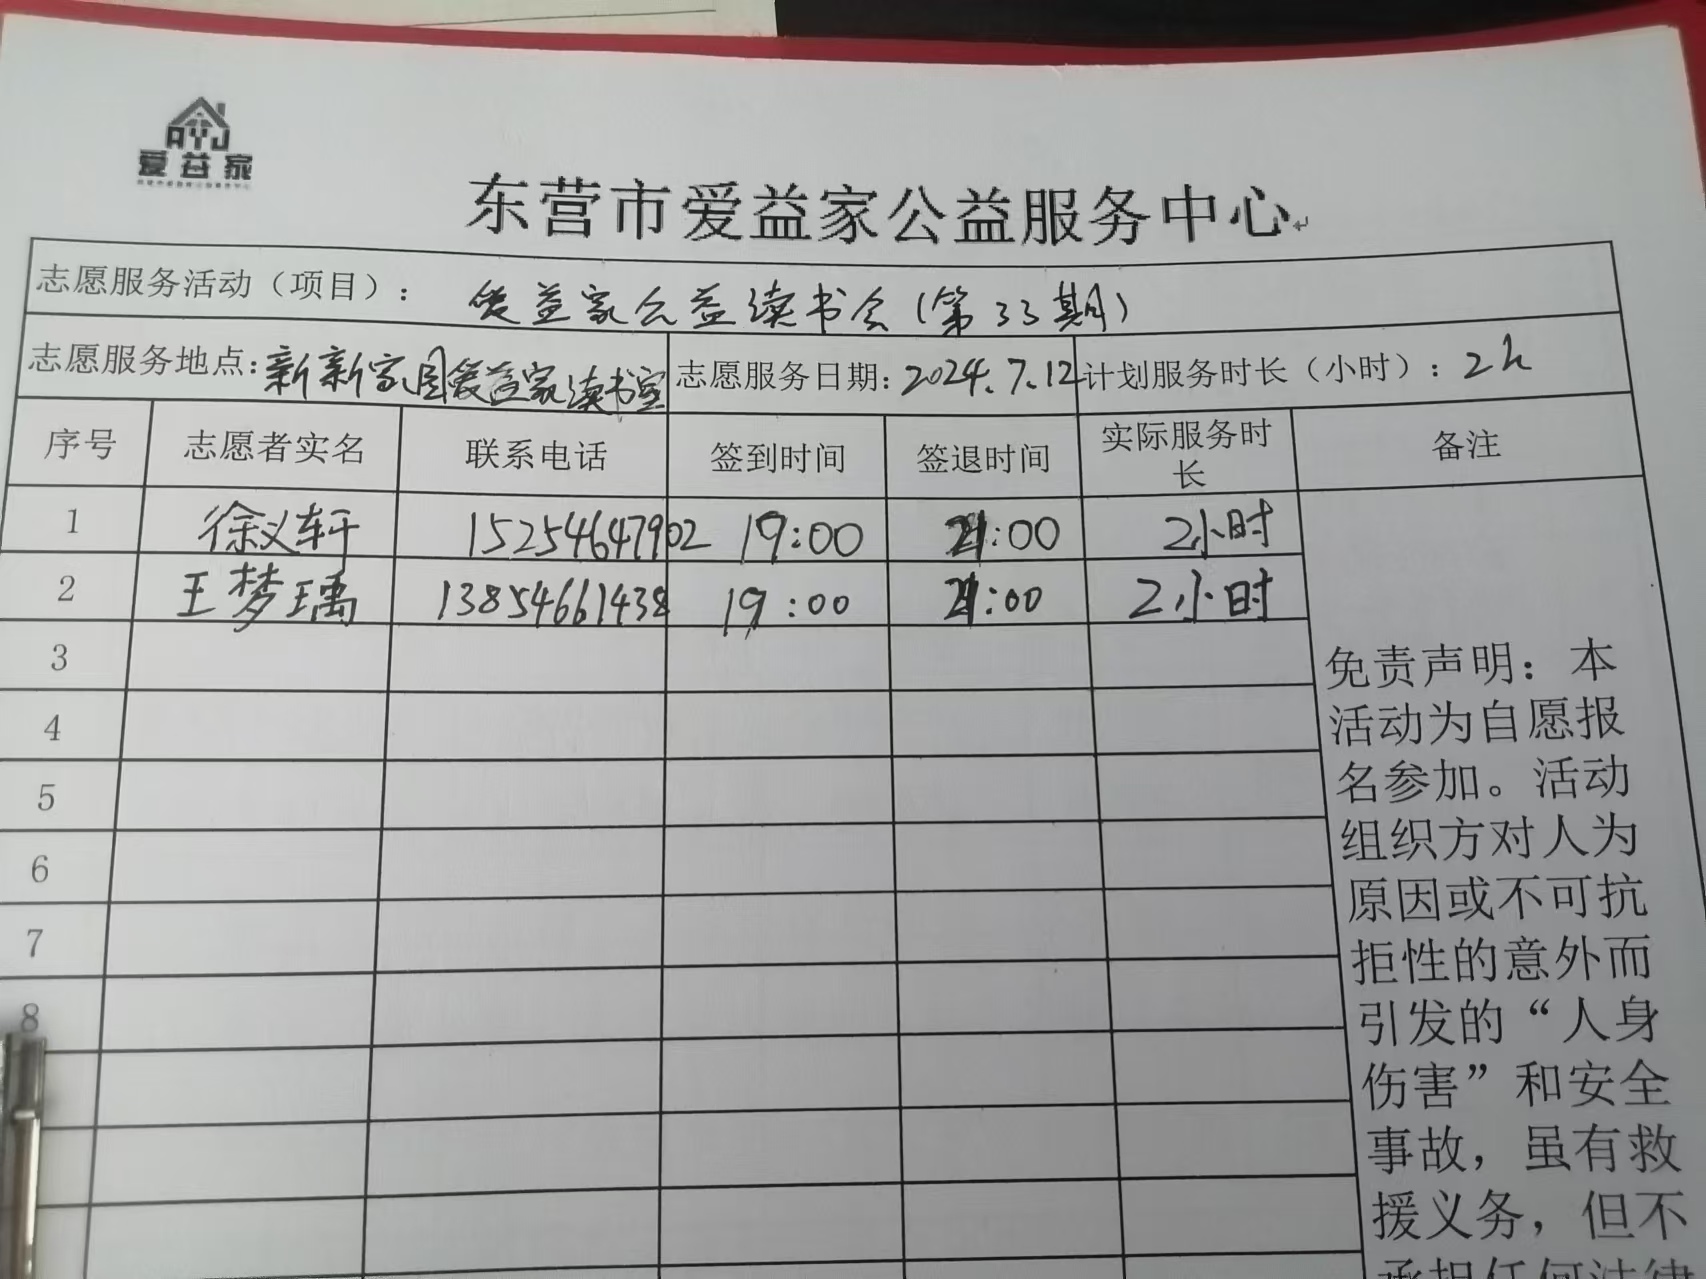 AYJ
爱益家
东营市爱益家公益服务中心
志愿服务活动（项目）： 爱益家公益读书会（第33期）
志愿服务地点：新新家园爱益家读书室 志愿服务日期：2024.7.12 计划服务时长（小时）：2h
序号 志愿者实名 联系电话 签到时间 签退时间 实际服务时长 备注
1 徐义轩 15254647902 19:00 21:00 2小时
2 王梦瑀 13854661438 19:00 21:00 2小时
3
4
5
6
7
8
免责声明：本
活动为自愿报
名参加。活动
组织方对人为
原因或不可抗
拒性的意外而
引发的“人身
伤害”和安全
事故，虽有救
援义务，但不
承担任何法律